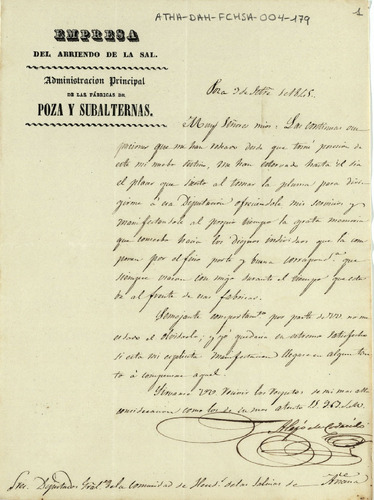 ATHA-DAH-FCHSA-004-179
1
EMPRESA
DEL ARRIENDO DE LA SAL.
Administracion Principal
DE LAS FÁBRICAS DE
POZA Y SUBALTERNAS.
Poza 9 de 1845.
Muy Señores mios: Las continuas
que me han desde que tomé posesion de
este mi nuevo destino, me han hasta el dia
el placer que siento al tomar la pluma para diri-
girme á esa Diputacion ofreciéndole mis servicios y
manifestandole al propio tiempo la grata memoria
que conservo hacia los dignos individuos que la com-
ponen por el fino porte y buena correspond.ª que
siempre usaron con migo durante el tiempo que estu-
be al frente de esas fabricas.
Semejante comportam.to por parte de VV. no me
es dado el olvidarlo; y yó quedaria en estremo satisfecho
si esta mi esplicita manifestacion llegare en algun tan-
to á compensar aquel.
VV. de mi mas alta
consideracion como los de su mas atento S. S. Q. S. M. B.
Alejo de
Sres. Diputados de la comunidad de de las Salinas de Añana